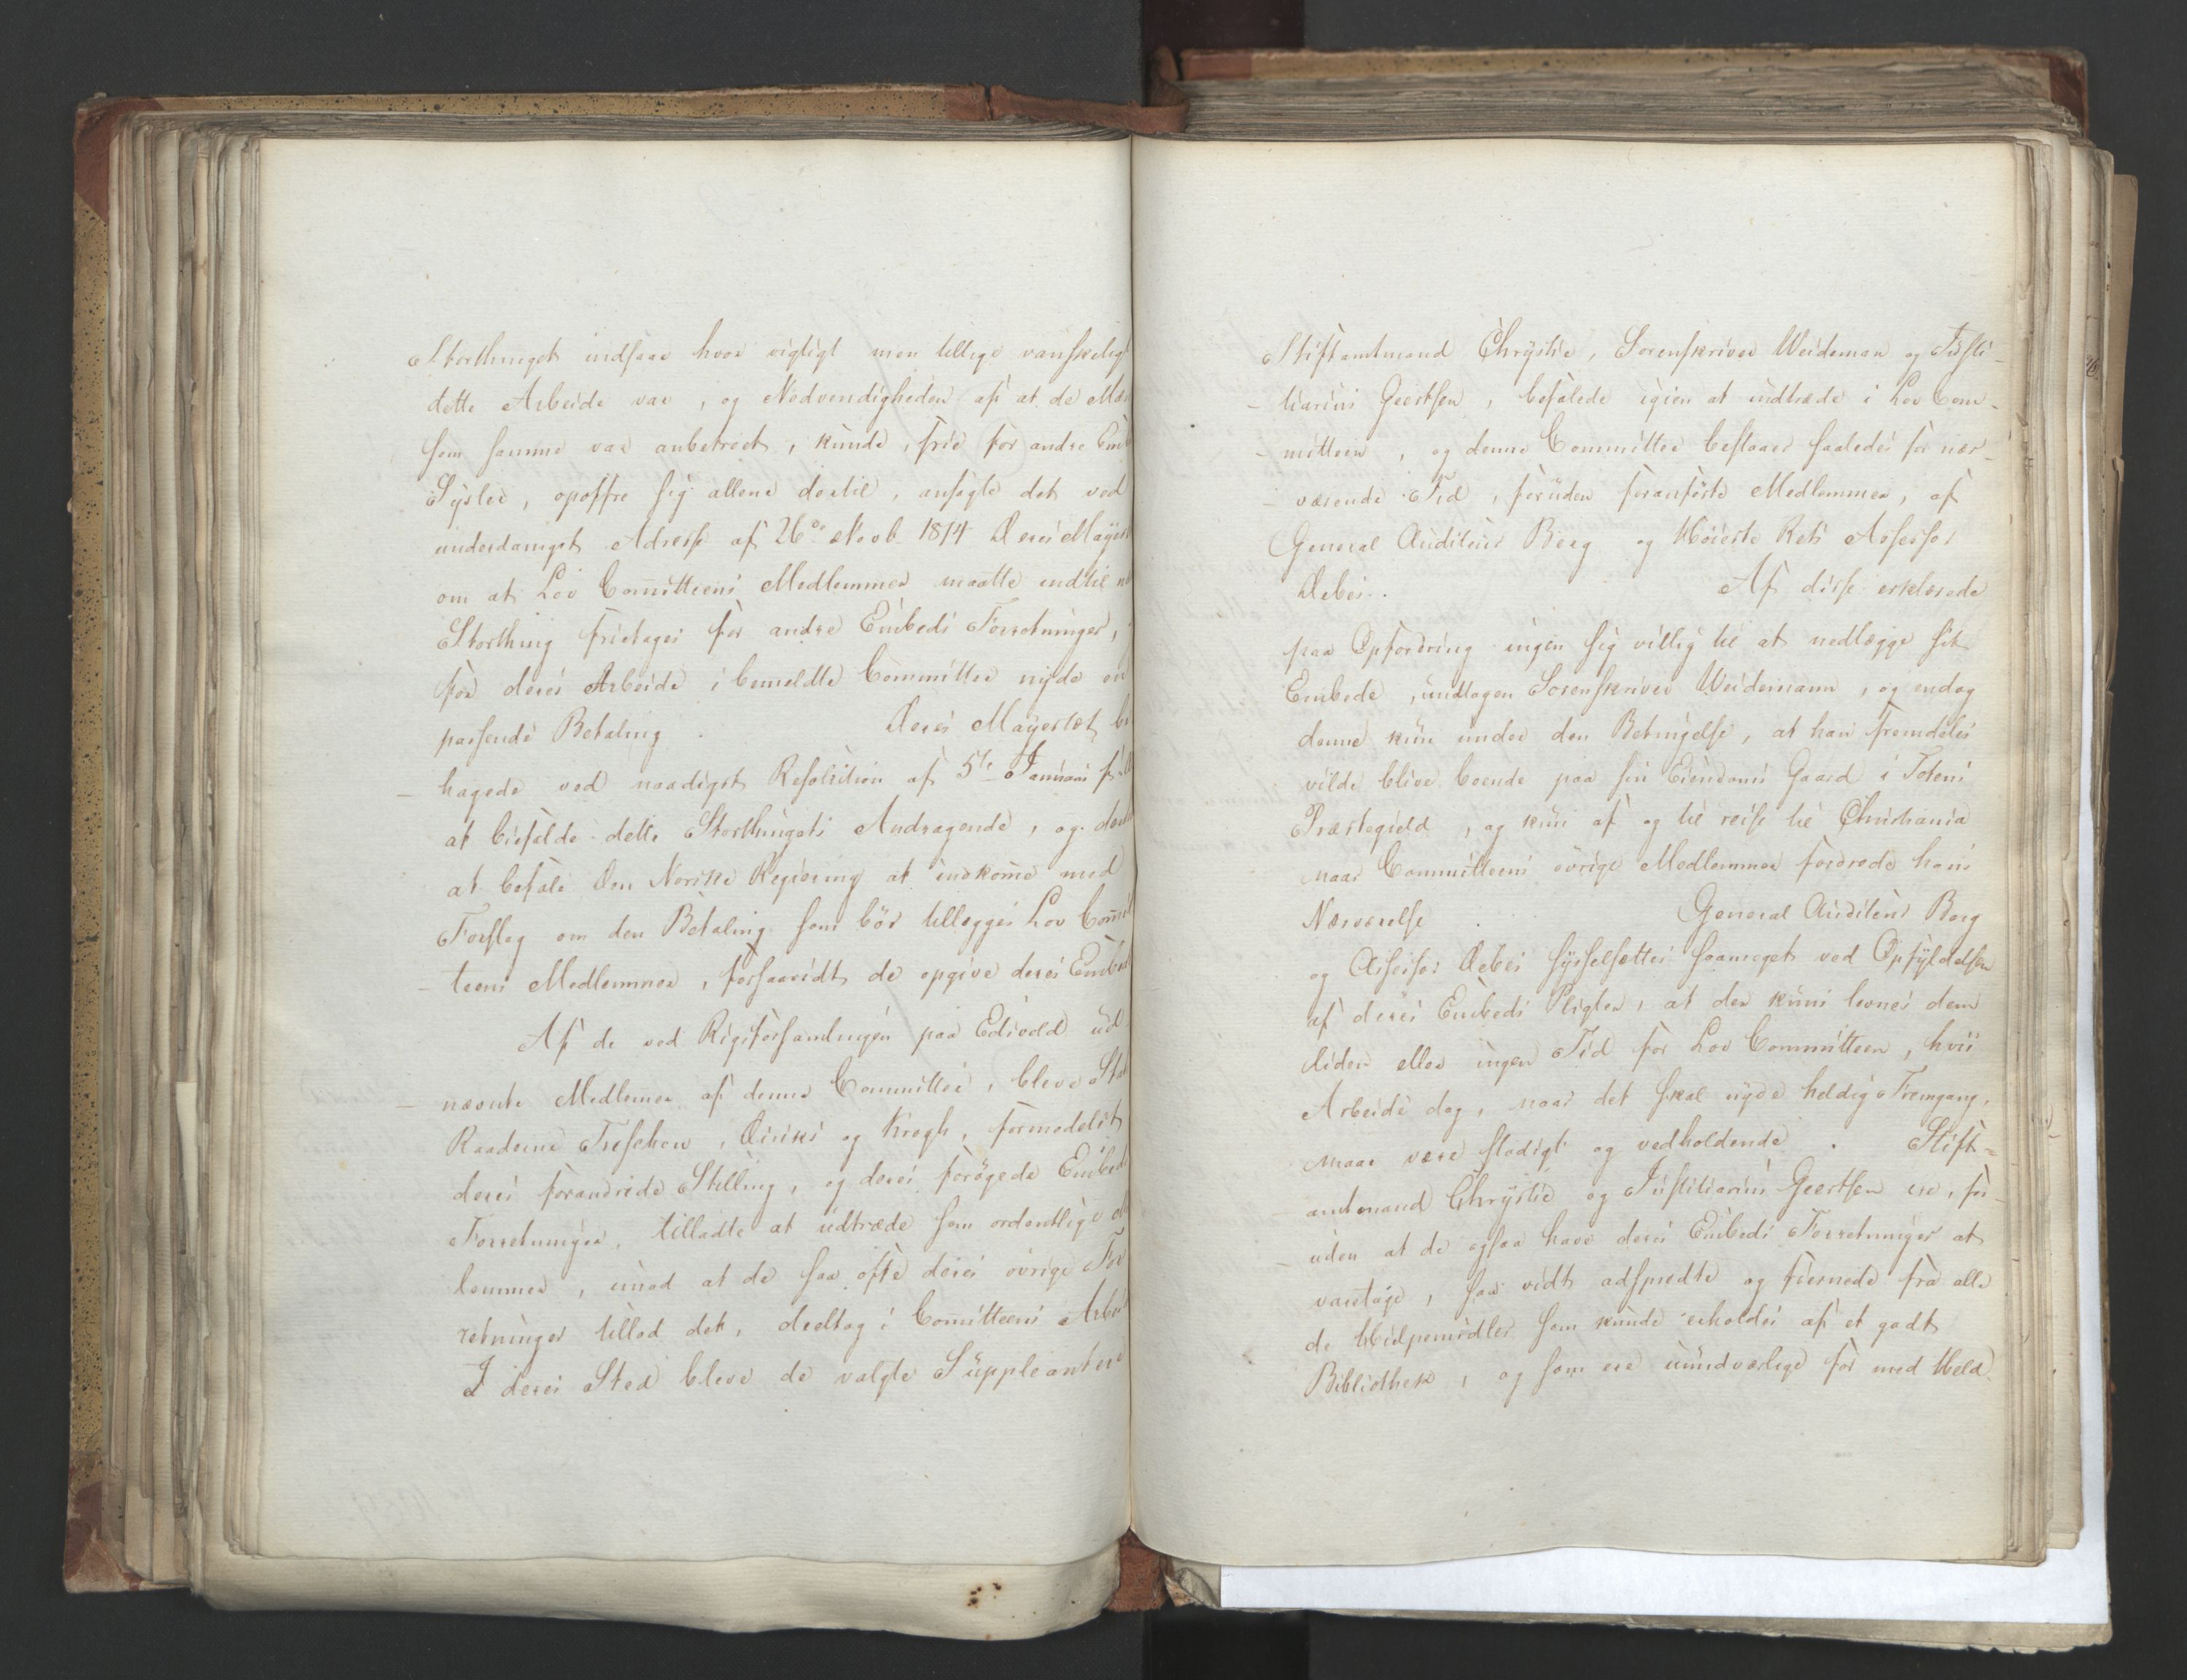 Storthinget indsaae hvor vigtigt men tillige vanskeligt
dette Arbeide var, og Nødvendigheden af at de Mæ
som samme var anbetroet, kunde, frie for andre Emb
Sysler, opoffre sig allene dertil, ansøgte det ved
underdanigst Adresse af 26de Novb 1814 Deres Mayes
om at Lov Committeens Medlemmer maatte indtil n
Storthing fritages for andre Embeds Forretninger,
for deres Arbeide i bemeldte Committee nyde en
passende Betaling . Deres Mayestæt be
- hagede ved naadigst Resolution af 5te Januari f:
at bifalde dette Storthingets Andragende, og der
at befale Den Norske Regiering at indkome med
Forslag om den Betaling som bør tillægges Lov Commit
- teens Medlemmer, forsaavidt de opgive deres Embed
Af de ved Rigsforsamlingen paa Edsvold ud
- nævnte Medlemer af denne Committee, bleve Stat
Raaderne Treschow, Diriks og Krogh, formedelst
deres forandrede Stilling, og deres forøgede Embeds
Forretninger, tilladte at udtræde som ordentlige
lemmer, imod at de saa ofte deres øvrige For
retninger tillod det, deeltog i Comitteens Arbei
I deres Sted bleve de valgte Suppleantere
Stiftamtmand Chrystie, Sorenskriver Weideman og Justi-
- tiarius Geertsen, befalede igien at indtræde i Lov Com-
- mitteen, og denne Committee bestaaer saaledes for nær-
- værende Tid, foruden foranførte Medlemmer, af
General Auditeur Berg og Høieste Rets Assessor
Debes. Af disse erklærede
paa Opfordring ingen sig villig til at nedlægge sit
Embede, undtagen Sorenskriver Weidemann, og endog
denne kun under den Betingelse, at han fremdeles
vilde blive boende paa sin Eiendoms Gaard i Totens
Præstegield, og kun af og til reise til Christiania
naar Committeens øvrige Medlemmer fordrede hans
Nærværelse . General Auditeur Berg
og Assessor Debes sysselsættes saameget ved Opfyldelsen
af deres Embeds Pligter, at der kuns levnes dem
liden eller ingen Tid for Lov Committeen, hvis
Arbeide dog, naar det skal nyde heldig Fremgang,
maae være stadigt og vedholdende . Stift=
- amtmand Chrystie og Justitiarius Geertsen ere, for-
- uden at de ogsaa have deres Embeds Forretninger at
varetage, saa vidt adspredte og fiernede fra alle
de Hielpemidler som kunde erholdes af et godt
Bibliothek, og som ere uundværlige for med Held